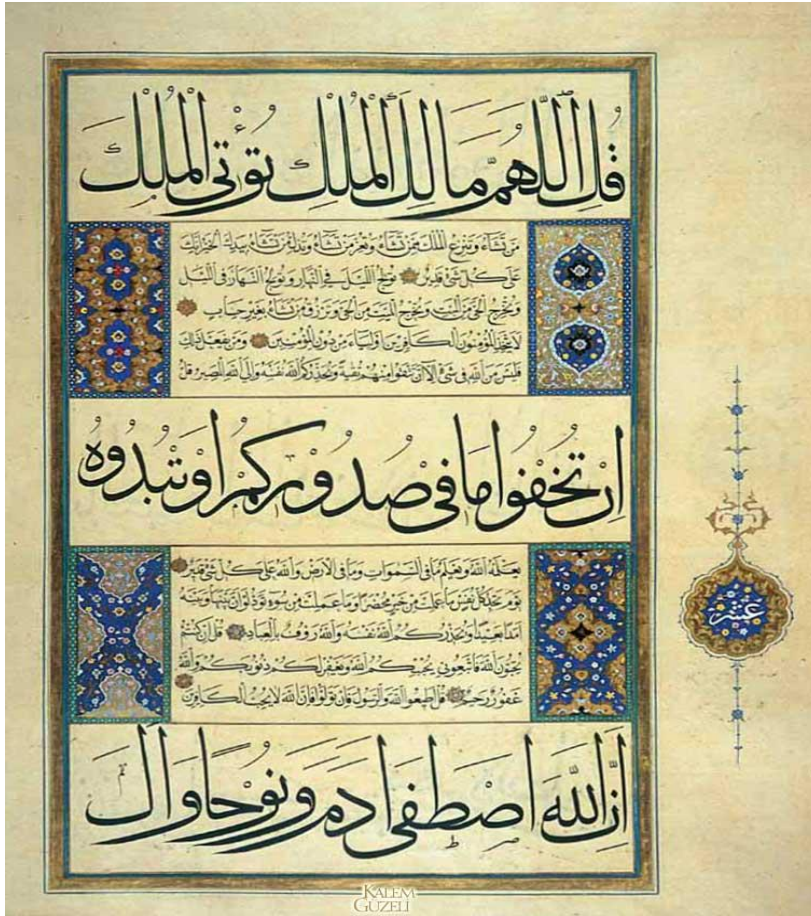 قُلِ اللّٰهُمَّ مَالِكَ الْمُلْكِ تُؤْتِى الْمُلْكَ
مَنْ تَشَاءُ وَتَنْزِعُ الْمُلْكَ مِمَّنْ تَشَاءُ وَتُعِزُّ مَنْ تَشَاءُ وَتُذِلُّ مَنْ تَشَاءُ بِيَدِكَ الْخَيْرُ اِنَّكَ
عَلٰى كُلِّ شَىْءٍ قَدِيرٌ تُولِجُ اللَّيْلَ فِى النَّهَارِ وَتُولِجُ النَّهَارَ فِى اللَّيْلِ
وَتُخْرِجُ الْحَىَّ مِنَ الْمَيِّتِ وَتُخْرِجُ الْمَيِّتَ مِنَ الْحَىِّ وَتَرْزُقُ مَنْ تَشَاءُ بِغَيْرِ حِسَابٍ
لَا يَتَّخِذِ الْمُؤْمِنُونَ الْكَافِرِينَ اَوْلِيَاءَ مِنْ دُونِ الْمُؤْمِنِينَ وَمَنْ يَفْعَلْ ذٰلِكَ
فَلَيْسَ مِنَ اللّٰهِ فِى شَىْءٍ اِلَّا اَنْ تَتَّقُوا مِنْهُمْ تُقٰيةً وَيُحَذِّرُكُمُ اللّٰهُ نَفْسَهُ وَاِلَى اللّٰهِ الْمَصِيرُ قُلْ
اِنْ تُخْفُوا مَا فِى صُدُورِكُمْ اَوْ تُبْدُوهُ
يَعْلَمْهُ اللّٰهُ وَيَعْلَمُ مَا فِى السَّمٰوَاتِ وَمَا فِى الْاَرْضِ وَاللّٰهُ عَلٰى كُلِّ شَىْءٍ قَدِيرٌ
يَوْمَ تَجِدُ كُلُّ نَفْسٍ مَا عَمِلَتْ مِنْ خَيْرٍ مُحْضَرًا وَمَا عَمِلَتْ مِنْ سُوءٍ تَوَدُّ لَوْ اَنَّ بَيْنَهَا وَبَيْنَهُ
اَمَدًا بَعِيدًا وَيُحَذِّرُكُمُ اللّٰهُ نَفْسَهُ وَاللّٰهُ رَؤُفٌ بِالْعِبَادِ قُلْ اِنْ كُنْتُمْ
تُحِبُّونَ اللّٰهَ فَاتَّبِعُونِى يُحْبِبْكُمُ اللّٰهُ وَيَغْفِرْ لَكُمْ ذُنُوبَكُمْ وَاللّٰهُ
غَفُورٌ رَحِيمٌ قُلْ اَطِيعُوا اللّٰهَ وَالرَّسُولَ فَاِنْ تَوَلَّوْا فَاِنَّ اللّٰهَ لَا يُحِبُّ الْكَافِرِينَ
اِنَّ اللّٰهَ اصْطَفٰى اٰدَمَ وَنُوحًا وَاٰلَ
عشر
KALEM
GÜZELİ